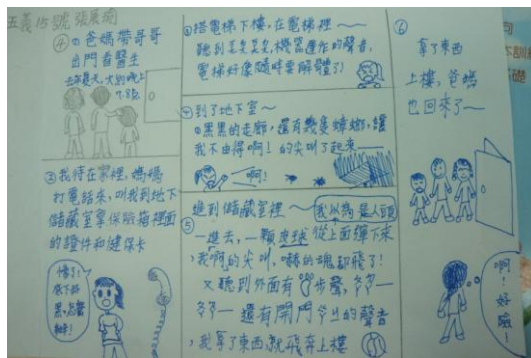 五義15號張展瑜
①爸媽帶哥哥
出門看醫生
去年夏天,大約晚上
7.8點
②我待在家裡,媽媽
打電話來,叫我到地下
儲藏室拿保險箱裡面
的證件和健保卡
慘了!
底下好
黑,怎麼
辦!
③搭電梯下樓,在電梯裡~~
聽到ㄍㄍㄍ機器運作的聲音,
電梯好像隨時要解體了!
④到了地下室~
黑黑的走廊,還有幾隻蟑螂,讓
我不由得啊!的尖叫了起來~~
啊!
⑤進到儲藏室裡~
我以為是人頭
一進去,一顆皮球從上面彈下來
,我啊的尖叫,嚇的魂都飛了!
又聽到外面有步聲,
還有開門的聲音
,我拿了東西就飛奔上樓
⑥
拿了東西
上樓,爸媽
也回來了~~
啊!
好險!